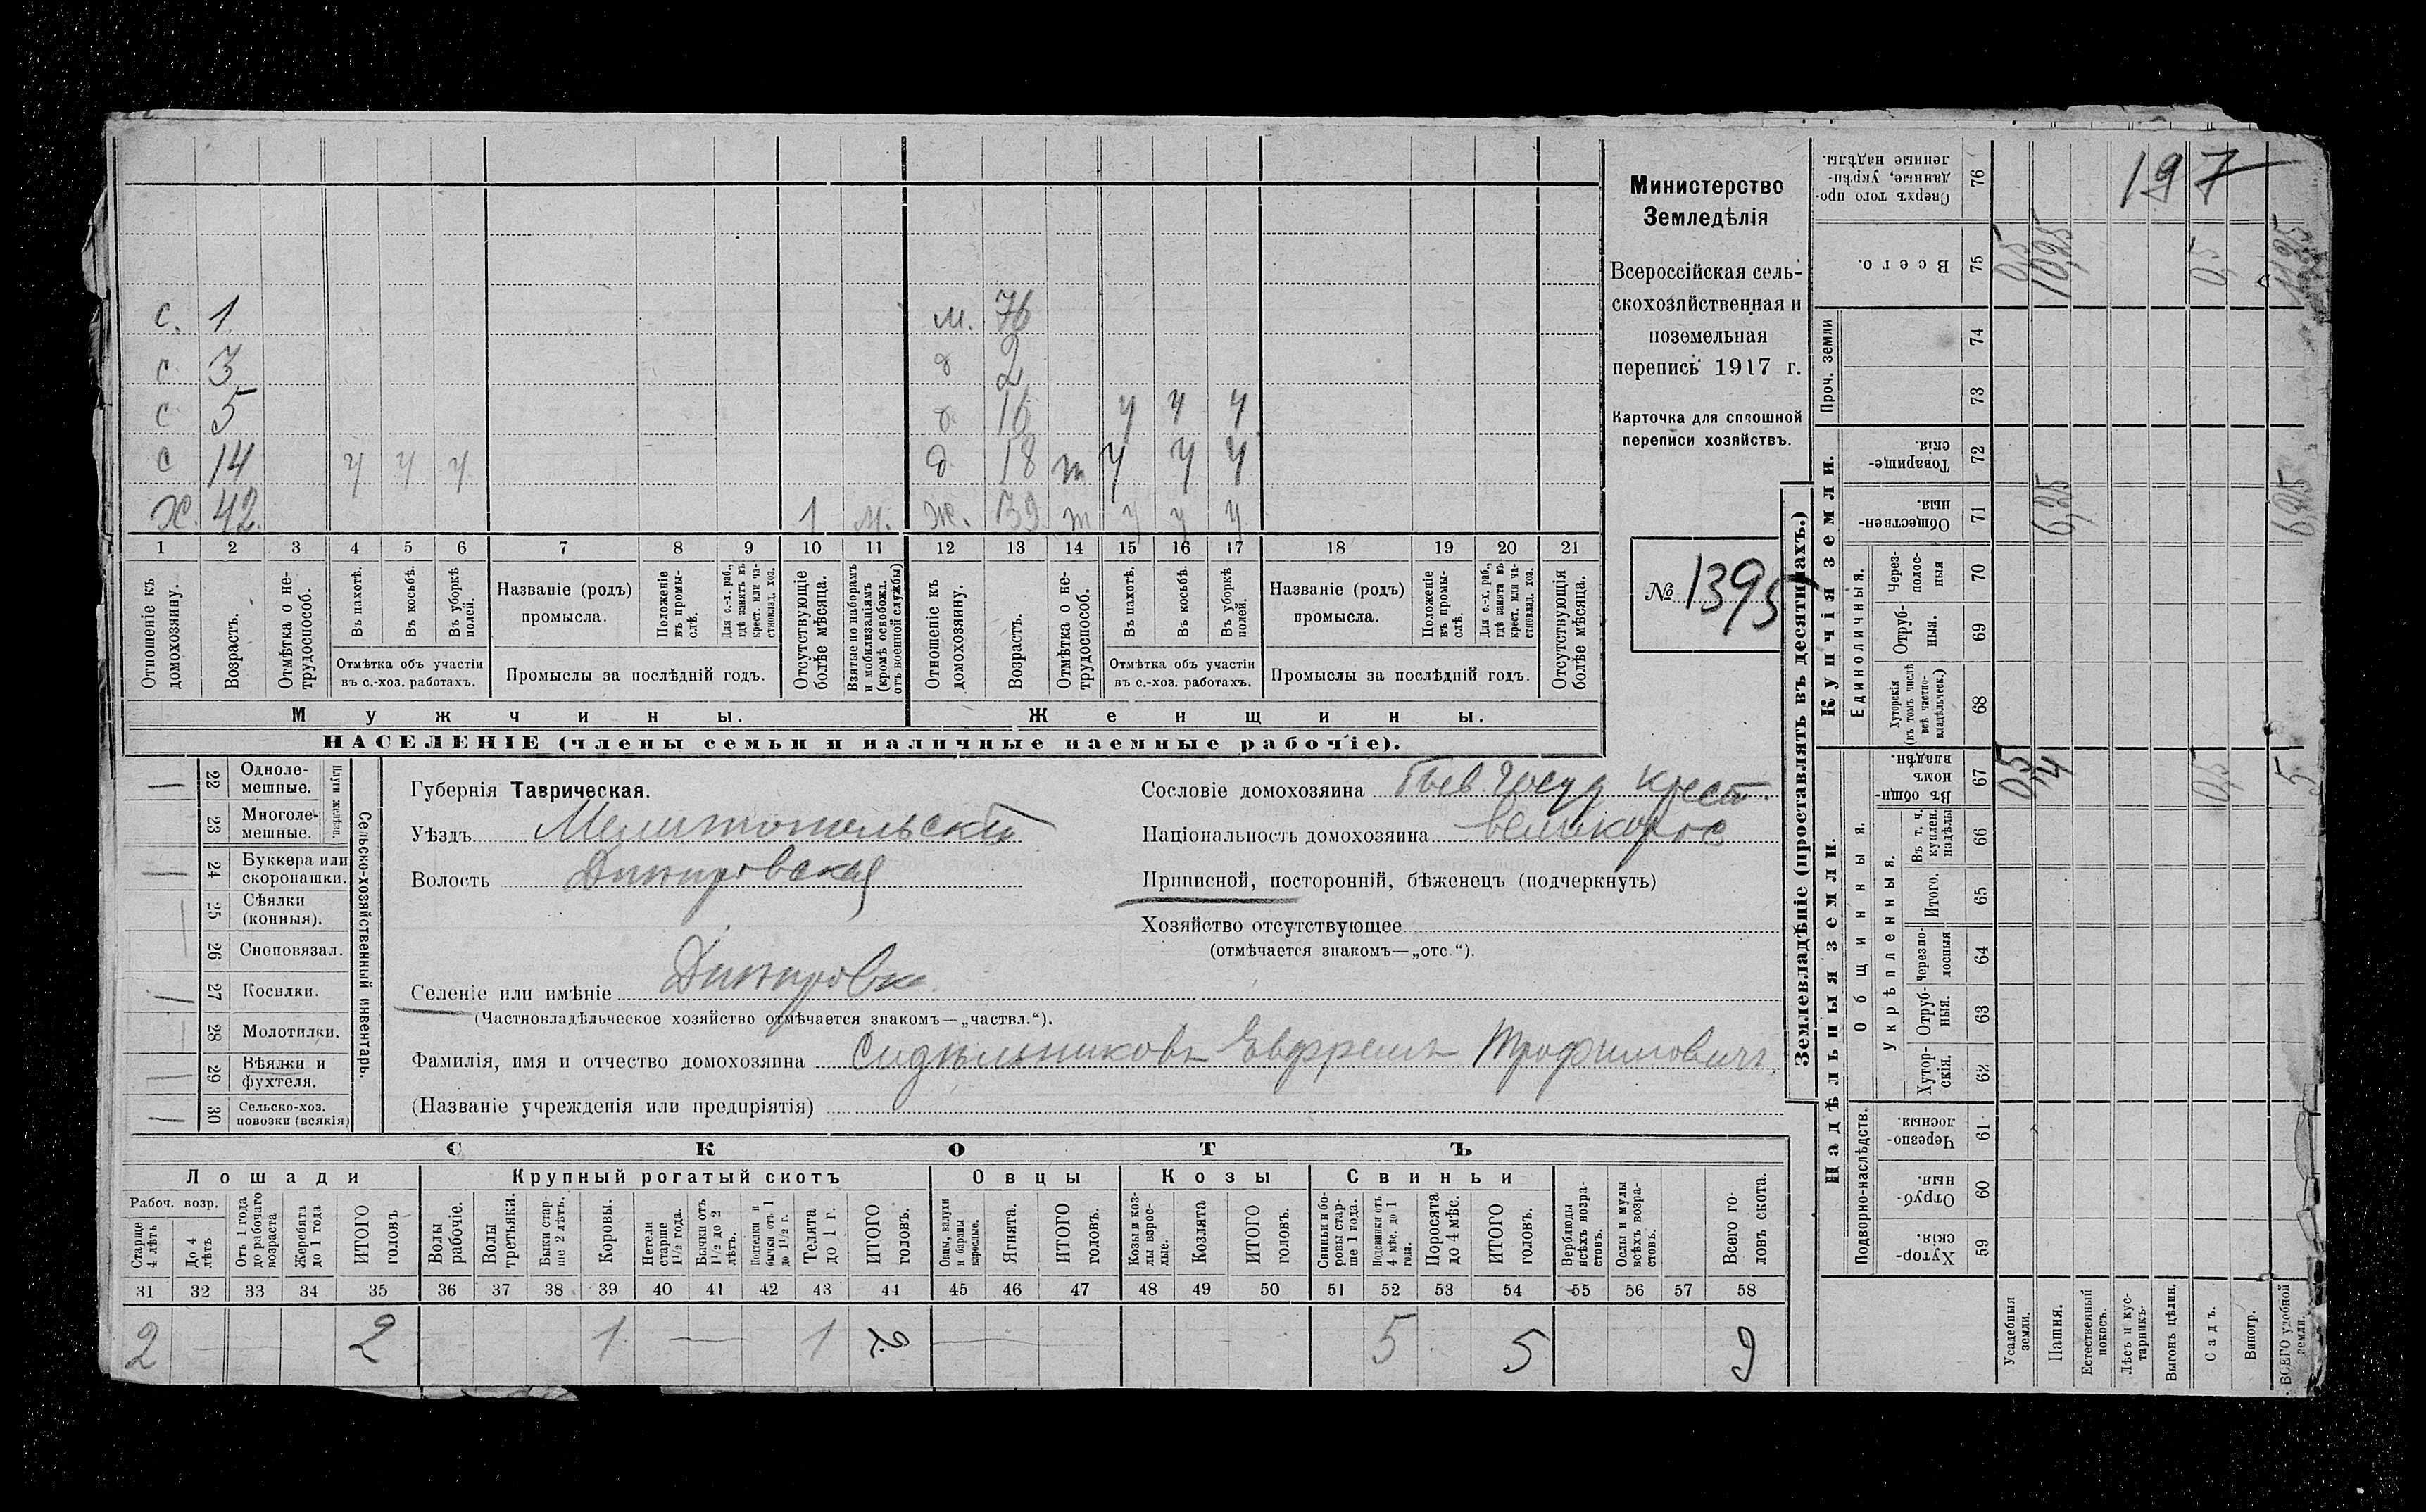 197
Министерство
Земледѣлія
Всероссійская сель-
скохозяйственная и
поземельная
перепись 1917 г.
Карточка для сплошной
переписи хозяйствъ.
№ 1395
с. 1 м. 76
с 3 д 2
с 5 д 16 у у у
с 14 у у у д 18 т у у у
ж. 42 1 м. ж. 39 т у у у
1 2 3 4 5 6 7 8 9 10 11 12 13 14 15 16 17 18 19 20 21
Отношеніе къ домохозяину.
Возрастъ.
Отмѣтка о не-
трудоспособ.
Въ пахотѣ.
Въ косьбѣ.
Въ уборкѣ
полей.
Отмѣтка объ участіи
въ с.-хоз. работахъ.
Названіе (родъ)
промысла.
Положеніе
въ промы-
слѣ.
Для с.-х. раб.,
гдѣ занятъ въ
крест. или ча-
стновлад. хоз.
Промыслы за послѣдній годъ.
Отсутствующіе
болѣе мѣсяца.
Взятые по наборамъ
и мобилизаціямъ
(кромѣ освобожд.
отъ военной службы)
Отношеніе къ
домохозяину.
Возрастъ.
Отмѣтка о не-
трудоспособ.
Въ пахотѣ.
Въ косьбѣ.
Въ уборкѣ
полей.
Отмѣтка объ участіи
въ с.-хоз. работахъ.
Названіе (родъ)
промысла.
Положеніе
въ промы-
слѣ.
Для с.-х. раб.,
гдѣ занята въ
крест. или ча-
стновлад. хоз.
Промыслы за послѣдній годъ.
Отсутствующія
болѣе мѣсяца.
Мужчины. Женщины.
НАСЕЛЕНІЕ (члены семьи и наличные наемные рабочіе).
22 Одноле-
мешные.
23 Многоле-
мешные.
Плуги желѣзн.
24 Буккера или
скоропашки.
25 Сѣялки
(конныя).
26 Сноповязал.
27 Косилки.
28 Молотилки.
29 Вѣялки и
фухтеля.
30 Сельско-хоз.
повозки (всякія)
Сельско-хозяйственный инвентарь.
Губернія Таврическая.
Уѣздъ Мелитопольскій
Волость Днѣпровская
Селеніе или имѣніе Днѣпровка
(Частновладѣльческое хозяйство отмѣчается знакомъ—„частвл.“).
Фамилія, имя и отчество домохозяина Сидѣльниковъ Евфремъ Трофимовичъ
(Названіе учрежденія или предпріятія)
Сословіе домохозяина госуд крест.
Національность домохозяина великоросс
Приписной, посторонній, бѣженецъ (подчеркнуть)
Хозяйство отсутствующее
(отмѣчается знакомъ—„отс.“).
СКОТЪ
Лошади Крупный рогатый скотъ Овцы Козы Свиньи
Рабоч. возр.
Старше
4 лѣтъ
До 4
лѣтъ
Отъ 1 года
до рабочаго
возраста
Жеребята
до 1 года
ИТОГО
головъ
Волы
рабочіе.
Волы
третьяки.
Быки стар-
ше 2 лѣтъ.
Коровы.
Нетели
старше
1½ года.
Бычки отъ
1½ до 2
лѣтъ.
Подтелки и
бычки отъ 1
до 1½ г.
Телята
до 1 г.
ИТОГО
головъ.
Овцы, валухи
и бараны
взрослые.
Ягнята.
ИТОГО
головъ.
Козы и коз-
лы взрос-
лые.
Козлята
ИТОГО
головъ.
Свиньи и бо-
ровы стар-
ше 1 года.
Подсвинки отъ
4 мѣс. до 1
года.
Поросята
до 4 мѣс.
ИТОГО
головъ.
Верблюды
всѣхъ возра-
стовъ.
Ослы и мулы
всѣхъ возра-
стовъ.
Всего го-
ловъ скота.
31 32 33 34 35 36 37 38 39 40 41 42 43 44 45 46 47 48 49 50 51 52 53 54 55 56 57 58
2 2 1 1 2 5 5 9
Землевладѣніе (проставлять въ десятинахъ.)
Надѣльныя земли. Купчія земли.
Подворно-наслѣдств.
Общинныя.
Укрѣпленныя.
Единоличныя.
Проч. земли
Сверхъ того про-
данные, укрѣп-
ленные надѣлы. 76
Всего. 75 0,5 10,25 0,5 11,25
74
73
Товарище-
скія 72
Обществен-
ныя. 71 6,25 6,25
Через-
полос-
ныя 70
Отруб-
ныя. 69
Хуторскія
(въ томъ числѣ
всѣ частно-
владѣльческ.) 68
Въ общи-
номъ
владѣн. 67 0,5 4 0,5 5
Въ т. ч.
куплен.
надѣлы 66
Итого. 65
Черезпо-
лосныя 64
Отруб-
ныя. 63
Хутор-
скія. 62
Черезпо-
лосныя. 61
Отруб-
ныя. 60
Хутор-
скія. 59
Усадебныя
земли.
Пашня.
Естественный
покосъ.
Лѣсъ и кус-
тарникъ.
Выгонъ цѣлин.
Садъ.
Виногр.
ВСЕГО удобной
земли.